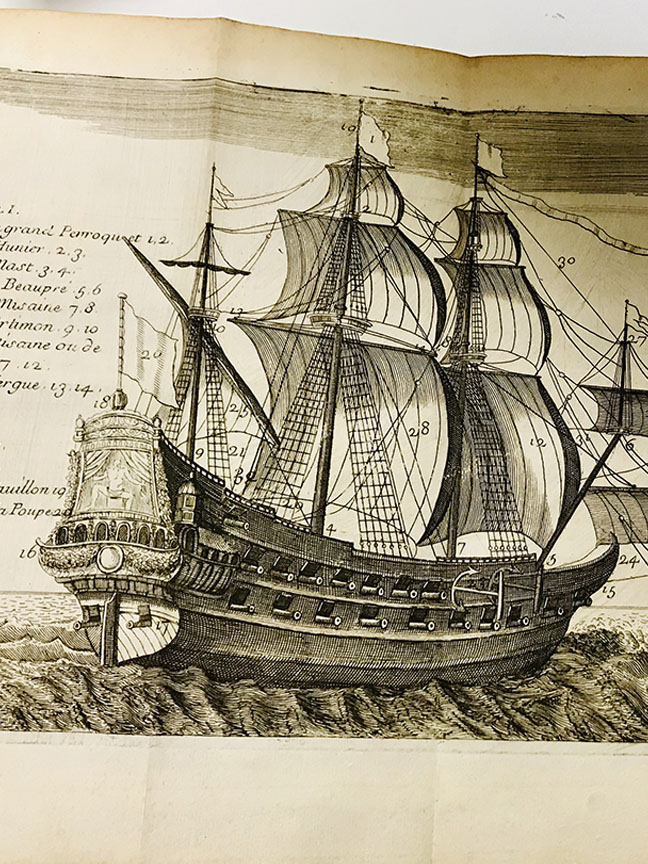 1.
grand Perroquet 1, 2.
Hunier . 2. 3.
Mast . 3. 4.
Beaupré 5. 6
Misaine 7. 8
Artimon . 9. 10
Misaine ou de
7 . 12.
Vergue . 13. 14.
18
Pauillon 19
la Poupe 20
16
19
1
2
30
27
26
28
12
25
9
21
4
7
5
6
24
15
17